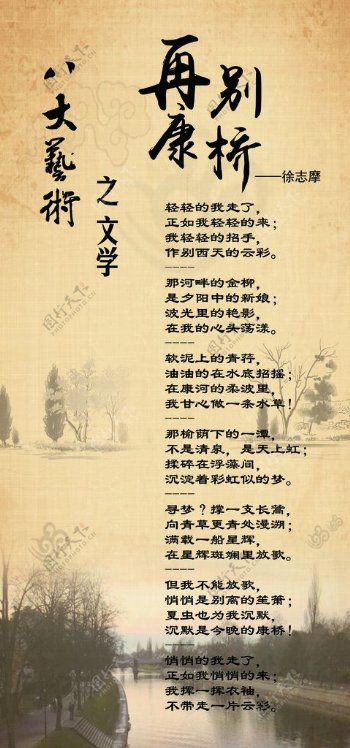 八大藝術
之文学
再别康桥
——徐志摩
轻轻的我走了，
正如我轻轻的来；
我轻轻的招手，
作别西天的云彩。
----
那河畔的金柳，
是夕阳中的新娘；
波光里的艳影，
在我的心头荡漾。
----
软泥上的青荇，
油油的在水底招摇；
在康河的柔波里，
我甘心做一条水草！
----
那榆荫下的一潭，
不是清泉，是天上虹；
揉碎在浮藻间，
沉淀着彩虹似的梦。
----
寻梦？撑一支长蒿，
向青草更青处漫溯；
满载一船星辉，
在星辉斑斓里放歌。
----
但我不能放歌，
悄悄是别离的笙箫；
夏虫也为我沉默，
沉默是今晚的康桥！
----
悄悄的我走了，
正如我悄悄的来；
我挥一挥衣袖，
不带走一片云彩。